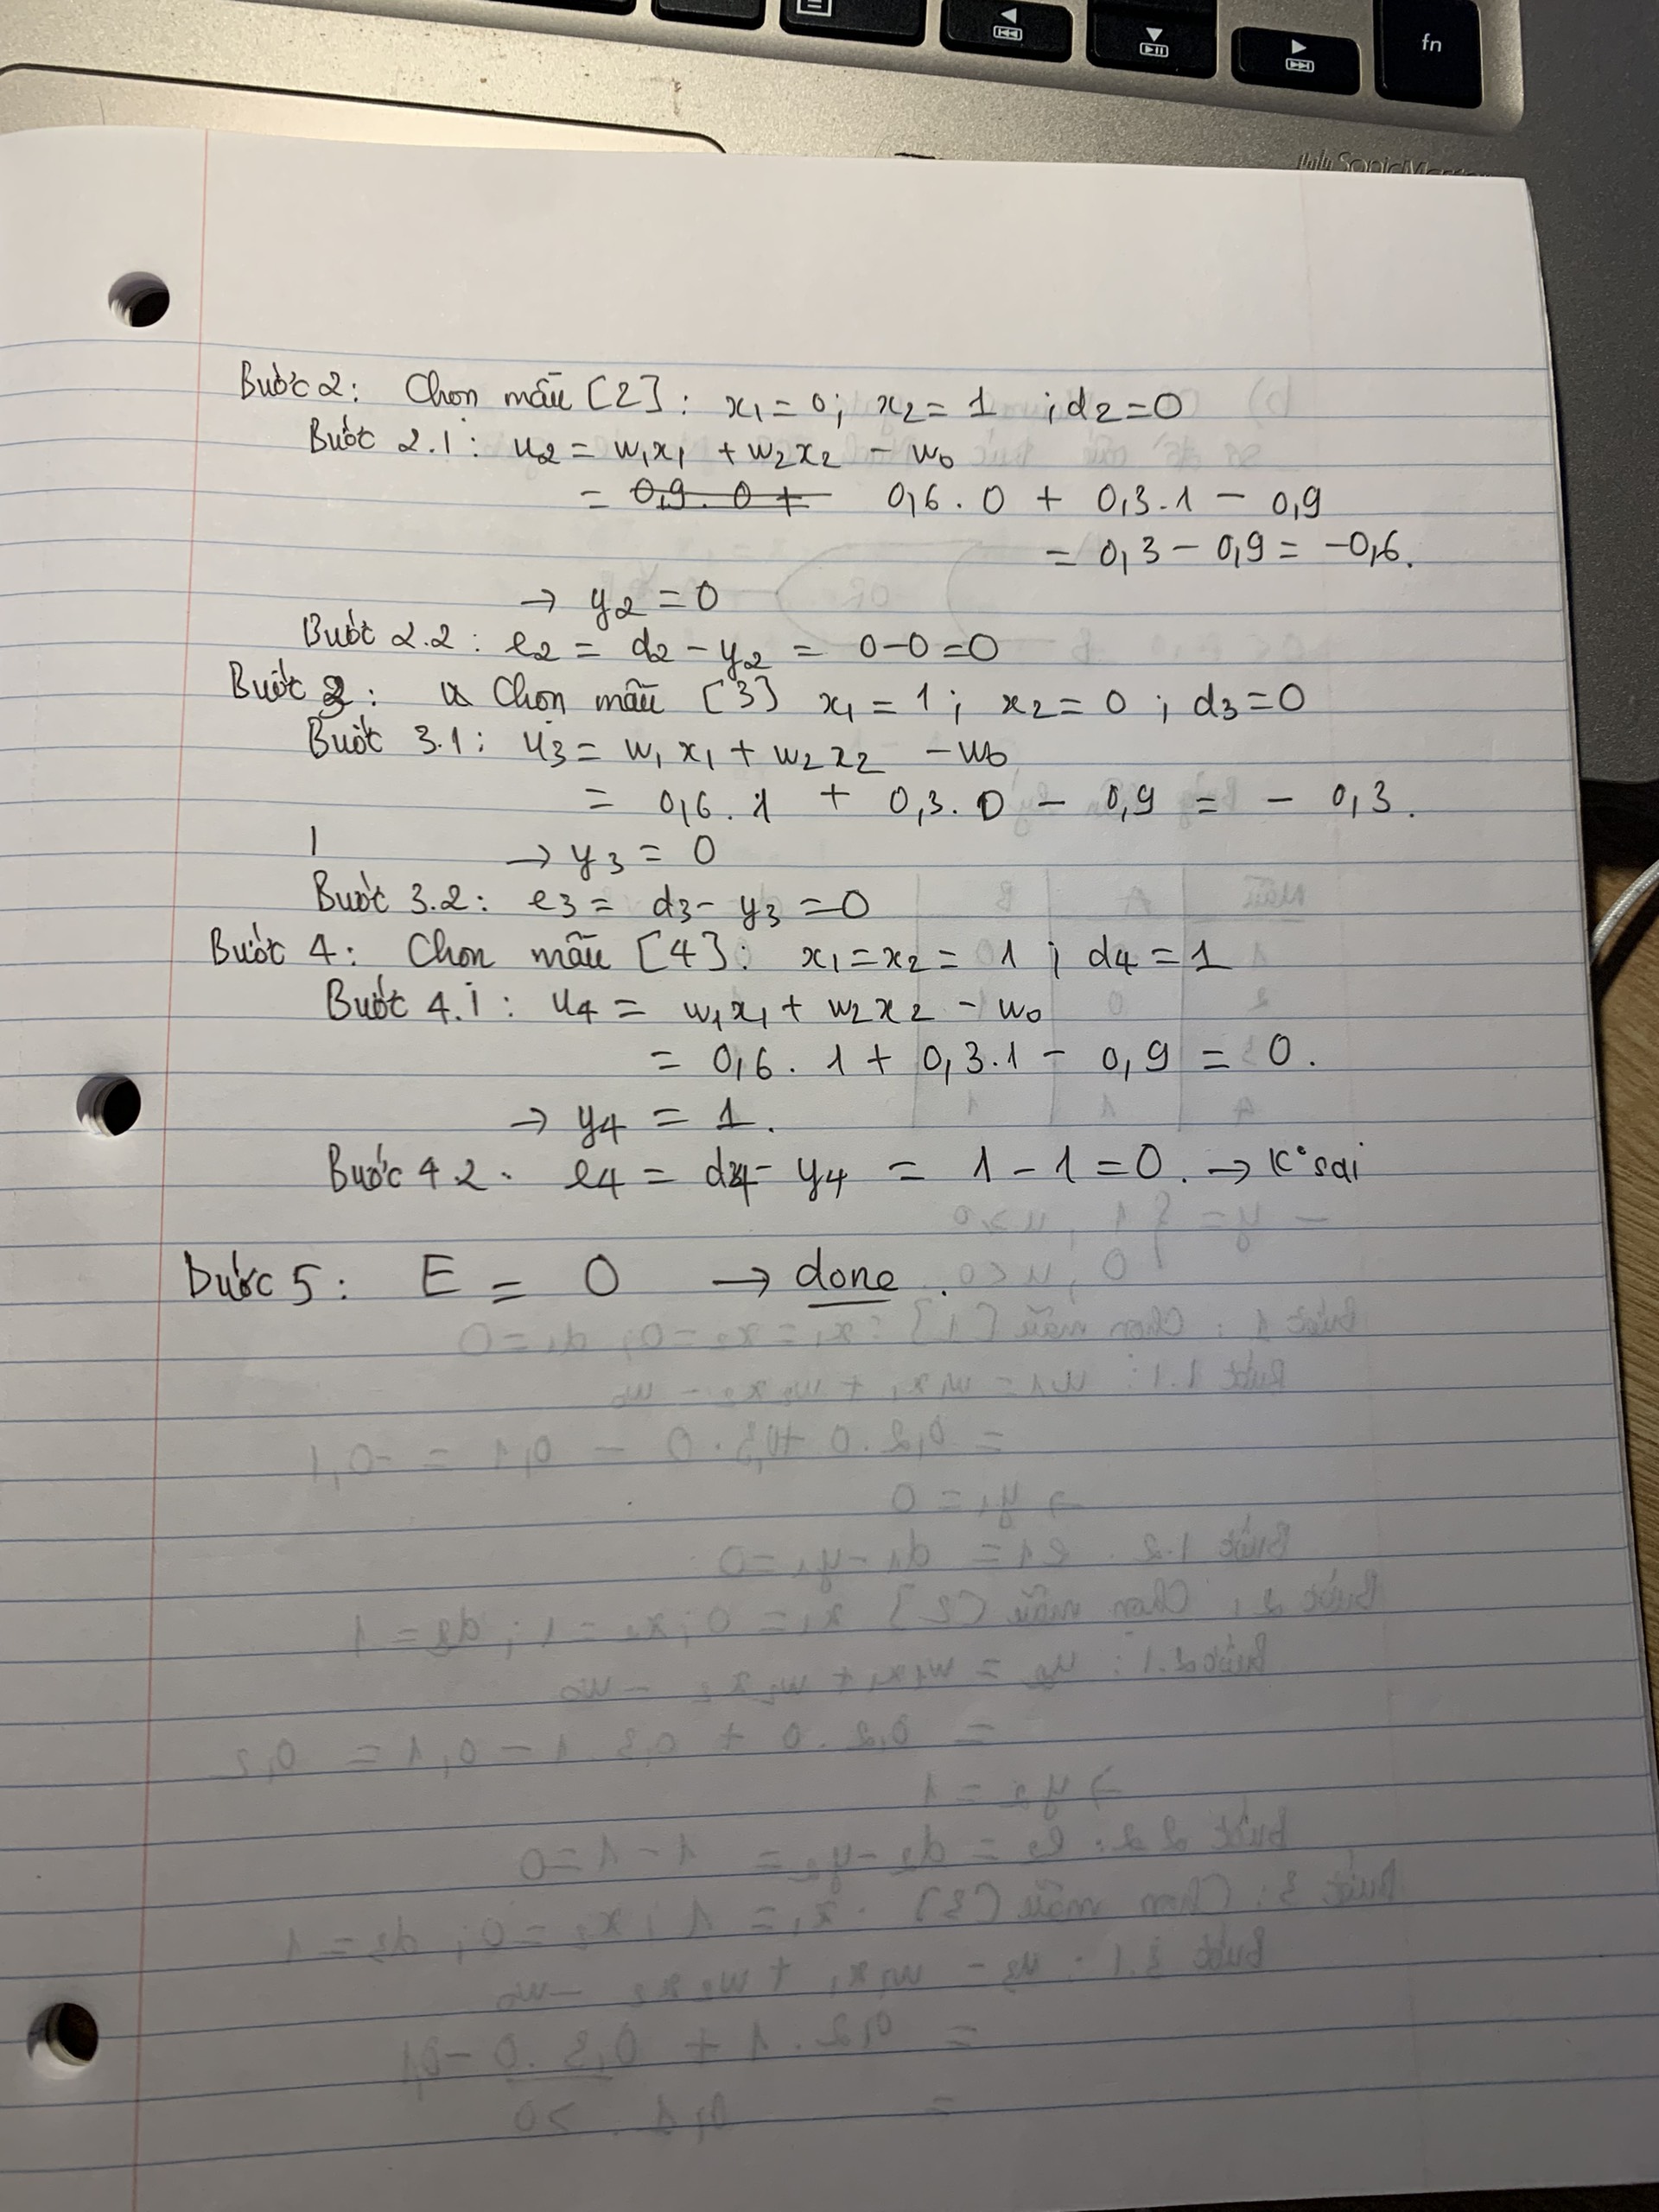 fn
SonicMas
Bước 2: Chọn mẫu [2]: x₁ = 0; x₂ = 1 ; d₂ = 0
Bước 2.1: u₂ = w₁x₁ + w₂x₂ - w₀
= 0,9. 0 + 0,6. 0 + 0,3.1 - 0,9
= 0,3 - 0,9 = -0,6.
→ y₂ = 0
Bước 2.2: e₂ = d₂ - y₂ = 0-0 = 0
Bước 3: Chọn mẫu [3] x₁ = 1; x₂ = 0 ; d₃ = 0
Bước 3.1: u₃ = w₁x₁ + w₂x₂ - w₀
= 0,6. 1 + 0,3. 0 - 0,9 = - 0,3.
→ y₃ = 0
Bước 3.2: e₃ = d₃ - y₃ = 0
Bước 4: Chọn mẫu [4]: x₁ = x₂ = 1 ; d₄ = 1
Bước 4.1: u₄ = w₁x₁ + w₂x₂ - w₀
= 0,6. 1 + 0,3.1 - 0,9 = 0.
→ y₄ = 1.
Bước 4.2. e₄ = d₄ - y₄ = 1 - 1 = 0. → K° sai
Bước 5: E = 0 → done.